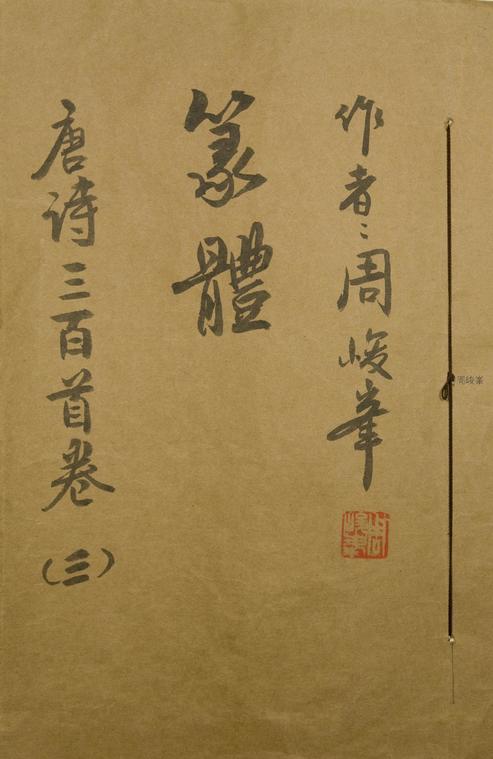 作者：周峻峯
篆體
唐诗三百首卷（三）
周峻峯